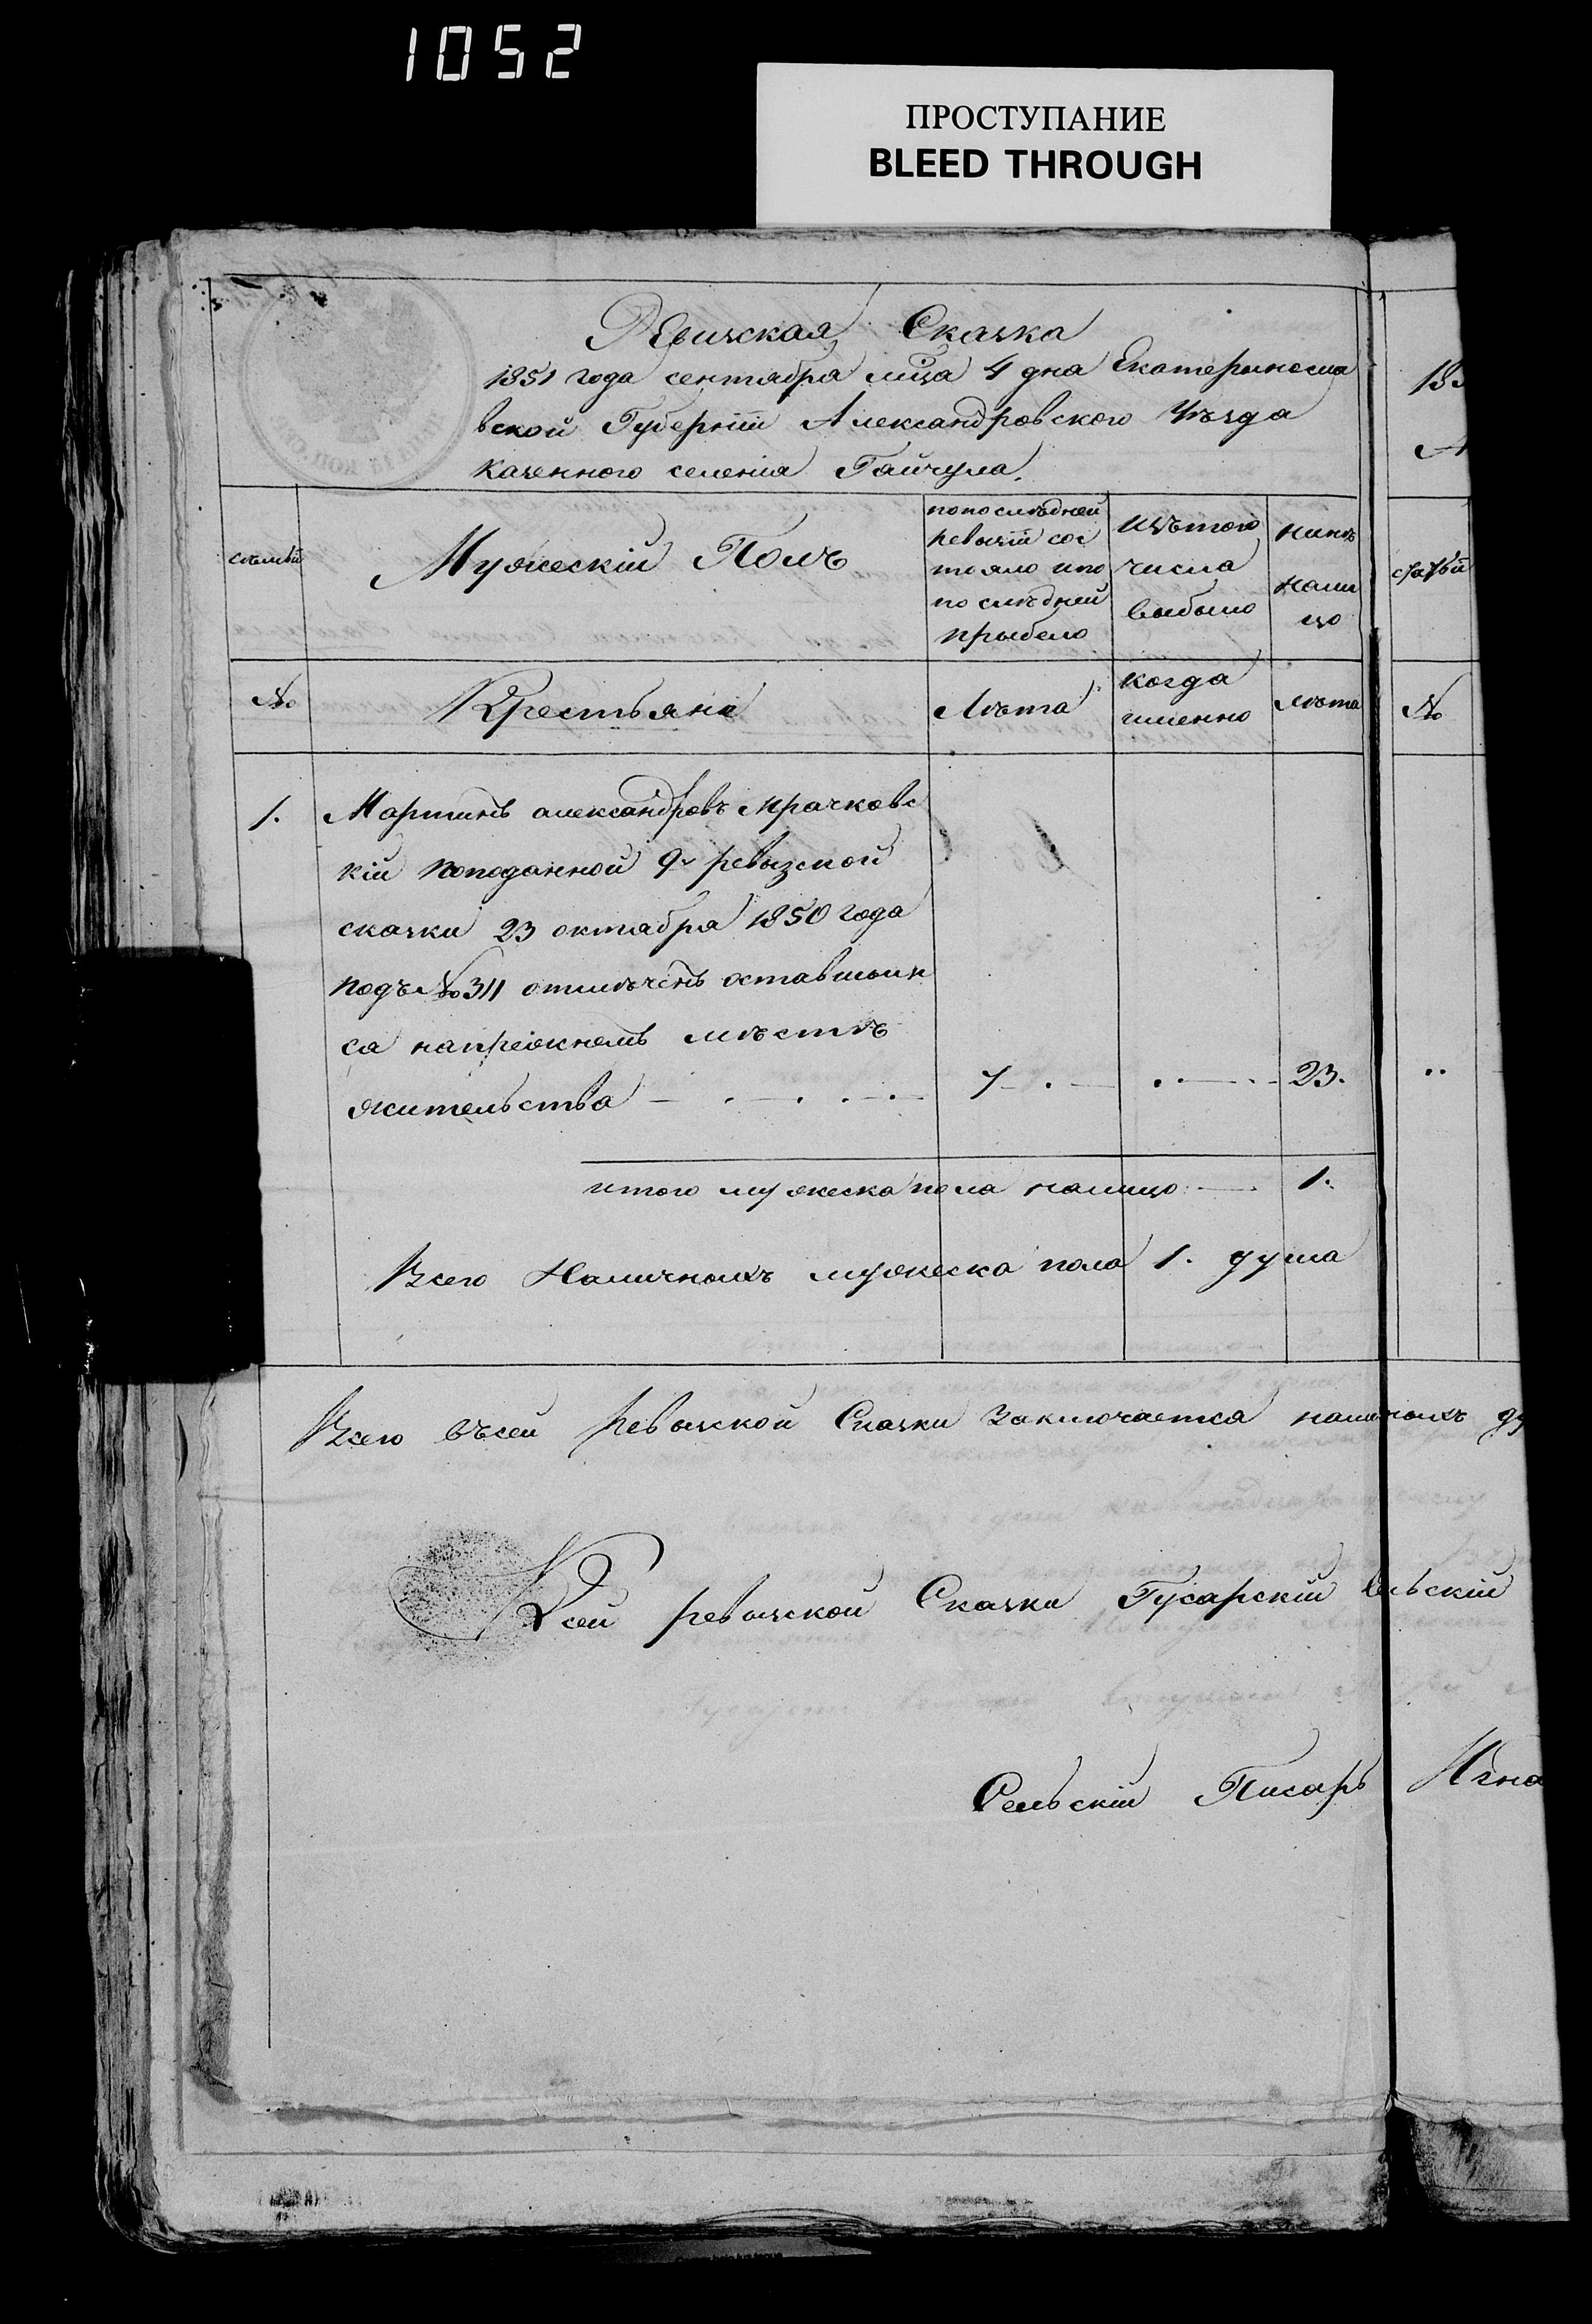 1052
ПРОСТУПАНИЕ
BLEED THROUGH
Ревизская Сказка
1851 года сентября мца 4 дня Екатериносла
вской Губерніи Александровского Уѣзда
Казенного селенія Гайчула.
183
А
семьи
Мужескій Полъ
попослѣдней
ревизіи сос
тояло ипо
послѣдней
прыбыло
изътого
числа
выбыло
нинѣ
нали
цо
№
Крестьяне
Лѣта
когда
именно
лѣта
№
1. Мартинъ александровъ мрачковс
кій поподанной 9й ревызской
сказки 23 октабря 1850 года
подъ №311 отмѣченъ оставшым
са напрежнемъ мѣстѣ
жительства 7 23.
итого мужеска пола налицо 1.
Всего Наличныхъ мужеска пола 1. душа
Всего въсей Ревызской Сказки Заключается наличныхъ ду
Ксей ревызской Сказки Гусарскій сельскій
Сельскій Писарь Игна